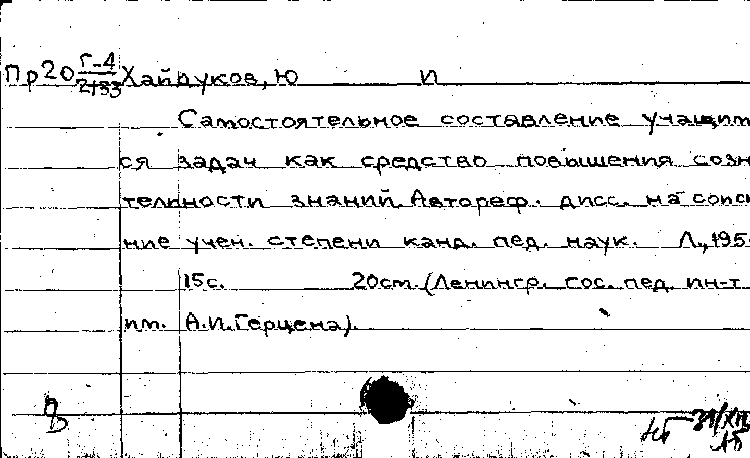 Пр20 Г-4/2133 Хайдуков, Ю И
Самостоятельное составление учащим
ся задач как средство повышения созн
тельности знаний. Автореф. дисс. на соиск
ние учен. степени канд. пед. наук. Л., 195
15с. 20см. (Ленингр. гос. пед. ин-т
им. А.И. Герцена).